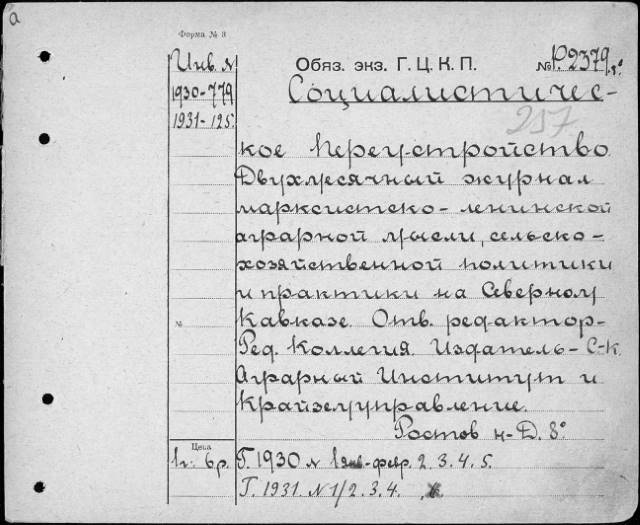 а
Форма № 3
Инв. №
1930-779
1931-125.
Обяз. экз. Г. Ц. К. П.
№ Р.2379.8°
Социалистичес-
257
кое Переустройство.
Двухмесячный журнал
марксистско-ленинской
аграрной мысли, сельско-
хозяйственной политики
и практики на Северном
Кавказе. Отв. редактор-
Ред. Коллегия. Издатель-С-К.
Аграрный Институт и
Крайземуправление.
Ростов н-Д. 8°
№
Цена
6р.
Г. 1930 № 1янв-февр. 2. 3. 4. 5.
Г. 1931. № 1/2. 3. 4.